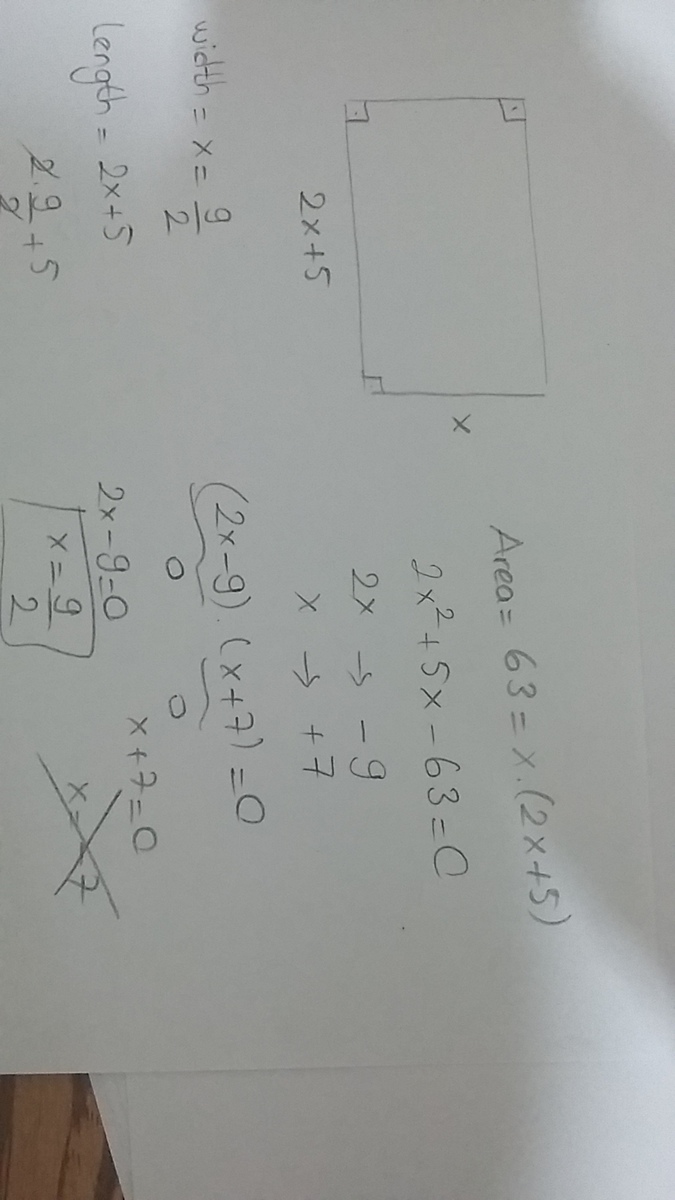 x
2x+5
width = x = 9/2
length = 2x+5
2·9/2 + 5
Area = 63 = x·(2x+5)
2x²+5x-63=0
2x → -9
x → +7
(2x-9)·(x+7)=0
0 0
2x-9=0 x+7=0
x=9/2 x=-7